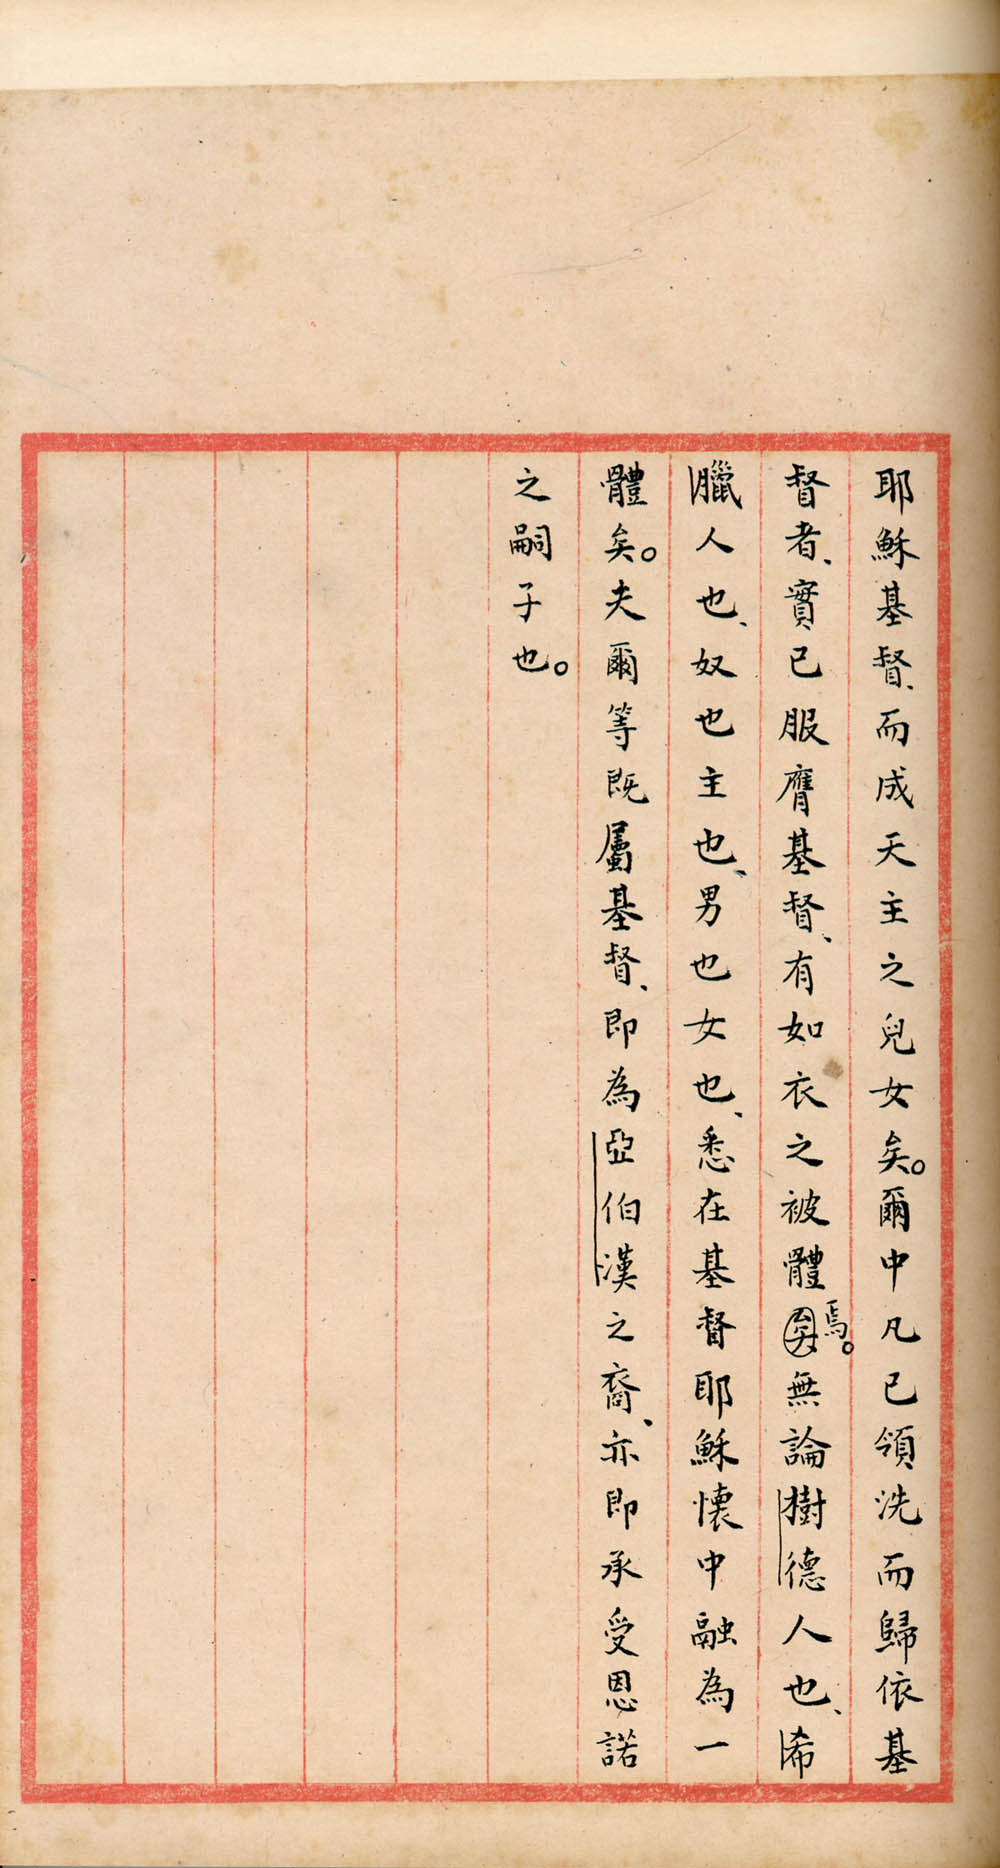 耶穌基督、而成天主之兒女矣。爾中凡已領洗而歸依基
督者、實已服膺基督、有如衣之被體矣焉。無論樹德人也、希
臘人也、奴也主也、男也女也、悉在基督耶穌懷中融為一
體矣。夫爾等既屬基督、即為亞伯漢之裔、亦即承受恩諾
之嗣子也。